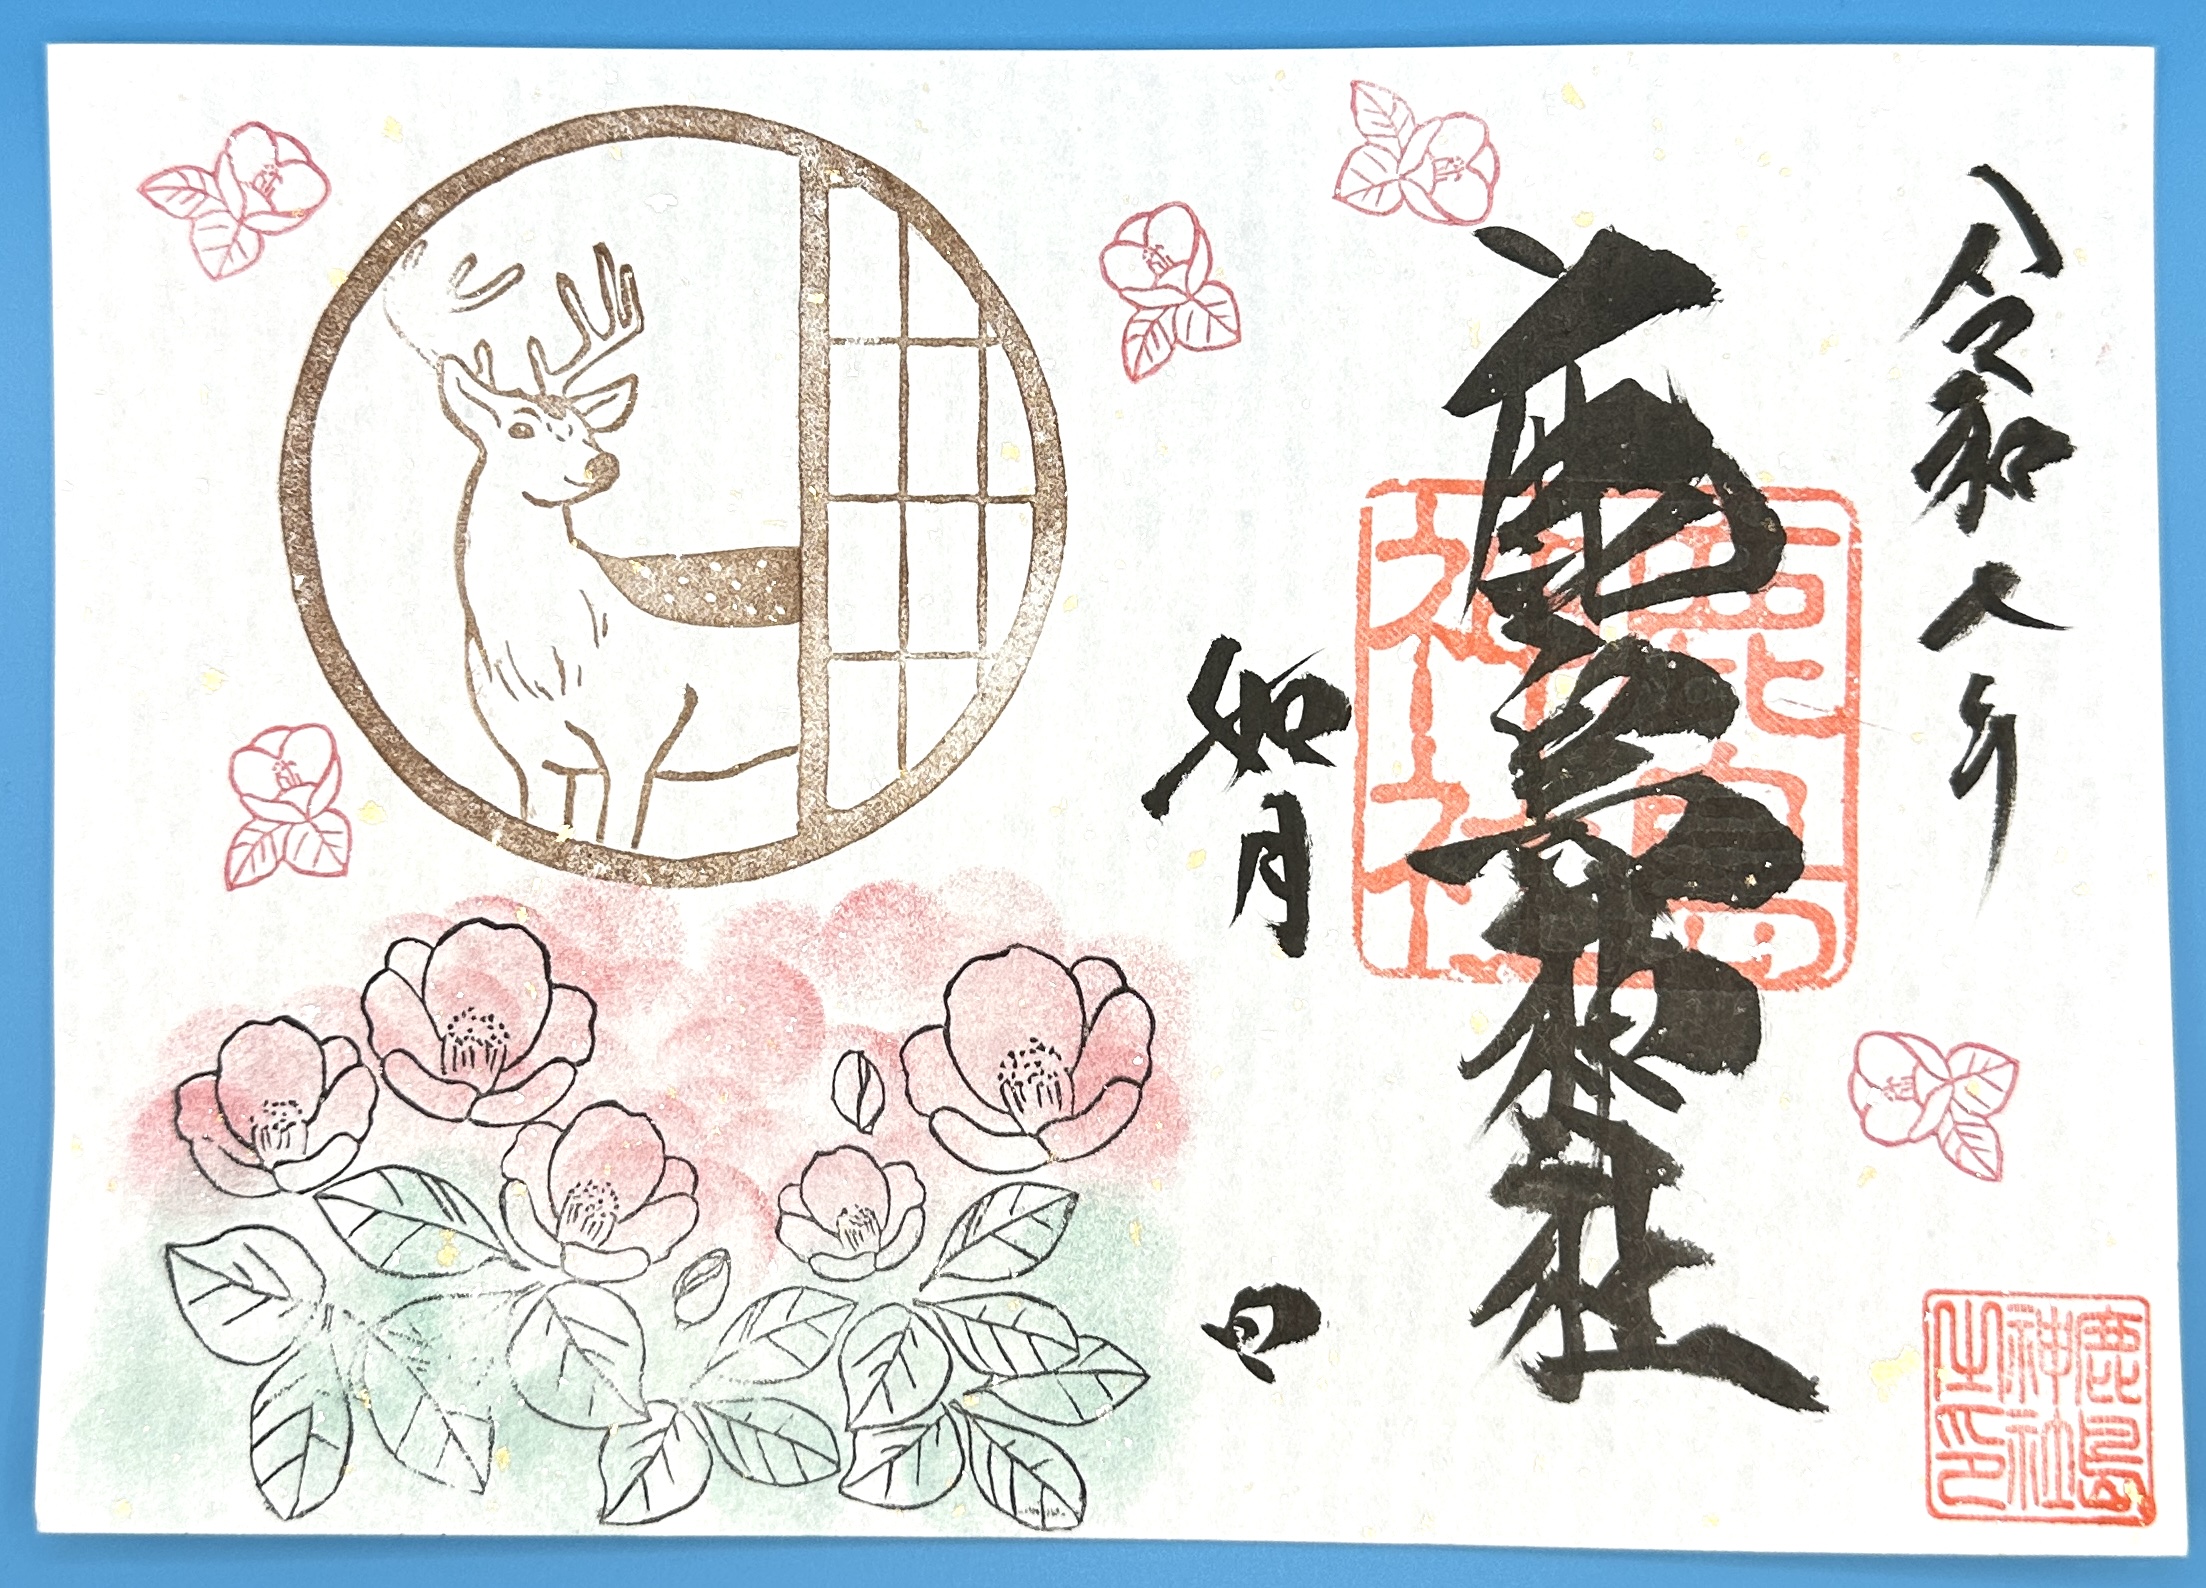 令和八年
鹿島神社
如月
日
鹿島
神社
鹿島
神社
之印